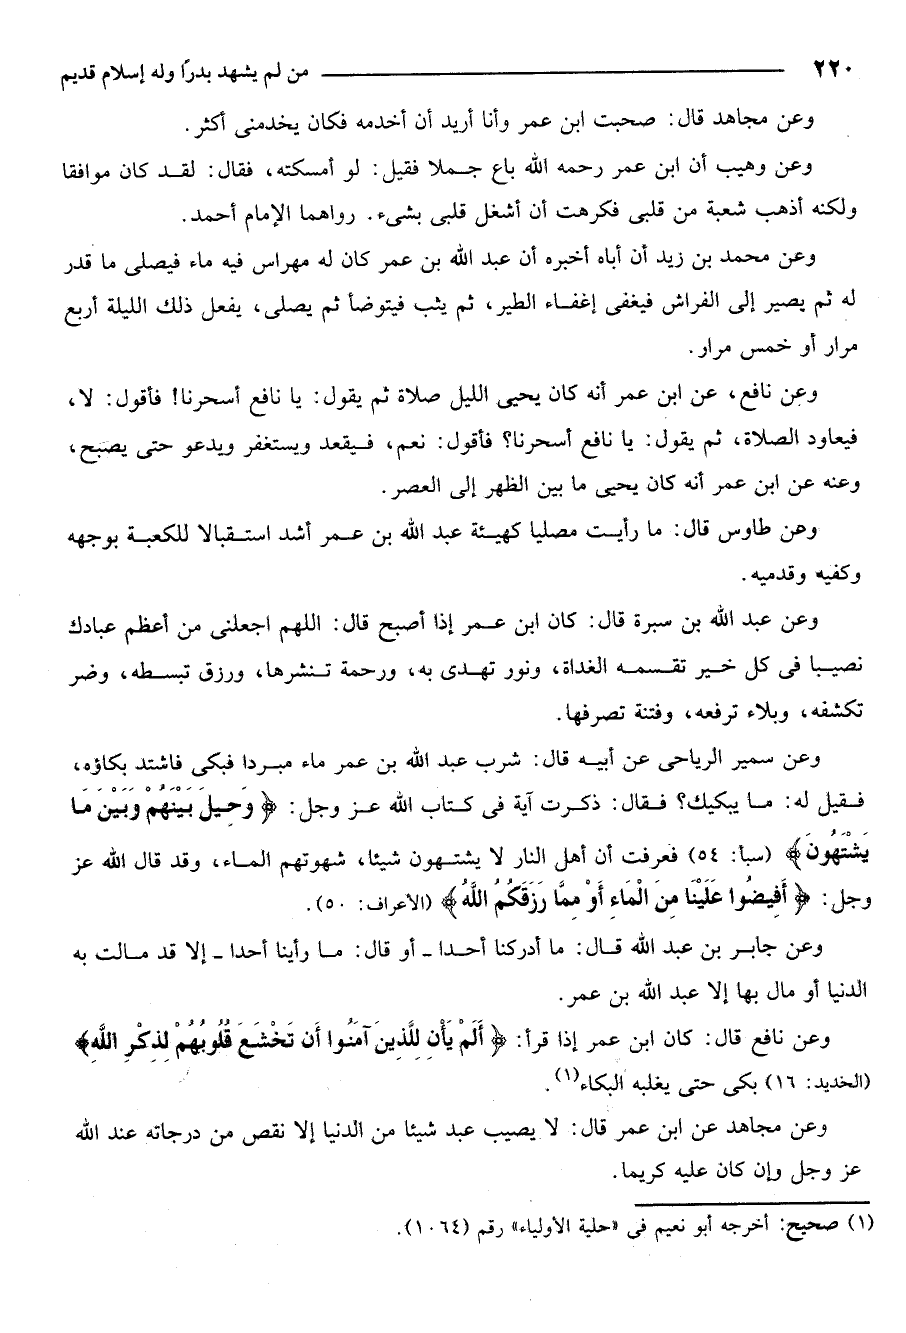 ٢٢٠ من لم يشهد بدرًا وله إسلام قديم
وعن مجاهد قال: صحبت ابن عمر وأنا أريد أن أخدمه فكان يخدمنى أكثر.
وعن وهيب أن ابن عمر رحمه الله باع جملا فقيل: لو أمسكته، فقال: لقد كان موافقا
ولكنه أذهب شعبة من قلبى فكرهت أن أشغل قلبى بشىء. رواهما الإمام أحمد.
وعن محمد بن زيد أن أباه أخبره أن عبد الله بن عمر كان له مهراس فيه ماء فيصلى ما قدر
له ثم يصير إلى الفراش فيغفى إغفاء الطير، ثم يثب فيتوضأ ثم يصلى، يفعل ذلك الليلة أربع
مرار أو خمس مرار.
وعن نافع، عن ابن عمر أنه كان يحيى الليل صلاة ثم يقول: يا نافع أسحرنا! فأقول: لا،
فيعاود الصلاة، ثم يقول: يا نافع أسحرنا؟ فأقول: نعم، فيقعد ويستغفر ويدعو حتى يصبح،
وعنه عن ابن عمر أنه كان يحيى ما بين الظهر إلى العصر.
وعن طاوس قال: ما رأيت مصليا كهيئة عبد الله بن عمر أشد استقبالا للكعبة بوجهه
وكفيه وقدميه.
وعن عبد الله بن سبرة قال: كان ابن عمر إذا أصبح قال: اللهم اجعلنى من أعظم عبادك
نصيبا فى كل خير تقسمه الغداة، ونور تهدى به، ورحمة تنشرها، ورزق تبسطه، وضر
تكشفه، وبلاء ترفعه، وفتنة تصرفها.
وعن سمير الرياحى عن أبيه قال: شرب عبد الله بن عمر ماء مبردا فبكى فاشتد بكاؤه،
فقيل له: ما يبكيك؟ فقال: ذكرت آية فى كتاب الله عز وجل: ﴿وَحِيلَ بَيْنَهُمْ وَبَيْنَ مَا
يَشْتَهُونَ﴾ (سبأ: ٥٤) فعرفت أن أهل النار لا يشتهون شيئا، شهوتهم الماء، وقد قال الله عز
وجل: ﴿أَفِيضُوا عَلَيْنَا مِنَ الْمَاءِ أَوْ مِمَّا رَزَقَكُمُ اللَّهُ﴾ (الأعراف: ٥٠).
وعن جابر بن عبد الله قال: ما أدركنا أحدا ـ أو قال: ما رأينا أحدا ـ إلا قد مالت به
الدنيا أو مال بها إلا عبد الله بن عمر.
وعن نافع قال: كان ابن عمر إذا قرأ: ﴿أَلَمْ يَأْنِ لِلَّذِينَ آمَنُوا أَن تَخْشَعَ قُلُوبُهُمْ لِذِكْرِ اللَّهِ﴾
(الحديد: ١٦) بكى حتى يغلبه البكاء(١).
وعن مجاهد عن ابن عمر قال: لا يصيب عبد شيئا من الدنيا إلا نقص من درجاته عند الله
عز وجل وإن كان عليه كريما.
(١) صحيح: أخرجه أبو نعيم فى «حلية الأولياء» رقم (١٠٦٤).